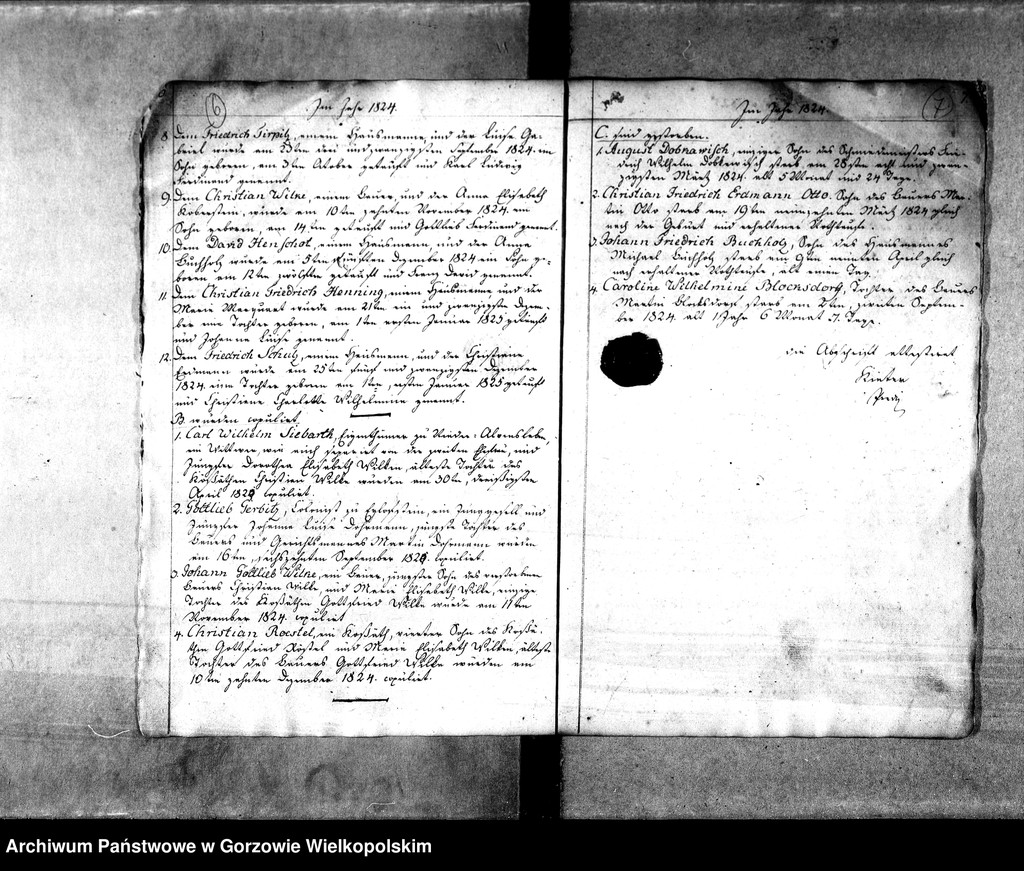 6
Im Jahr 1824.
8. Dem Friedrich Tirpitz, einem Hausmanne, und der Luise Ga-
wurde am 23ten drei und zwanzigsten September 1824. ein
Sohn geboren, am 3ten October getauft und Karl Ludwig
Ferdinand genannt.
9. Dem Christian Wilke, einem Bauer, und der Anne Elisabeth
Koberstein, wurde am 10ten zehnten November 1824. ein
Sohn geboren, am 14ten getauft und Gottlieb Ferdinand genannt.
10. Dem David Henschel, einem Hausmanne, und der Anne
Buchholz wurde am 5ten fünften Dezember 1824 ein Sohn ge-
boren am 12ten zwölften getauft und Franz David genannt.
11. Dem Christian Friedrich Henning, einem Hausmanne und der
Marie wurde am 21ten ein und zwanzigsten Dezem-
ber eine Tochter geboren, am 1ten ersten Januar 1825 getauft
und Johanne Luise genannt.
12. Dem Friedrich Schulz, einem Hausmann, und der Christiane
Erdmann wurde am 25ten fünf und zwanzigsten Dezember
1824. eine Tochter geboren am 1ten, ersten Januar 1825 getauft
und Christiane Charlotte Wilhelmine genannt.
B. wurden copulirt.
1. Carl Wilhelm Siebarth, Eigenthümer zu Nieder-Alvensleben,
ein Wittwer, von der zweiten Ehefrau, und
Jungfer Dorothea Elisabeth Wilken, älteste Tochter des
Kossäthen Christian Wilke wurden am 30ten, dreißigsten
April 1824 copulirt.
2. Gottlieb Gerbitz, Colonist zu ein Junggesell und
Jungfer Johanne Luise Dohrmann, jüngste Tochter des
Bauers und Gerichtsmannes Martin Dohrmann wurden
am 16ten, sechszehnten September 1824. copulirt.
3. Johann Gottlieb Wilke, ein Bauer, jüngster Sohn des verstorbenen
Bauers Christian Wilke, und Marie Elisabeth Wilke, einzige
Tochter des Kossäthen Gottfried Wilke wurde am 11ten
November 1824. copulirt
4. Christian Roestel, ein Kossäth, vierter Sohn des Kossä-
then Gottfried Röstel und Marie Elisabeth Wilken, älteste
Tochter des Bauers Gottfried Wilke wurden am
10ten zehnten Dezember 1824. copulirt.
7
Im Jahr 1824.
C. sind gestorben.
1. August Dobrawisch, einziger Sohn des Schmiedemeisters Frie-
drich Wilhelm Dobrawisch starb am 28sten acht und zwan-
zigsten Märtz 1824. alt 5 Monat und 24 Tage.
2. Christian Friedrich Erdmann Otto. Sohn des Bauers Mar-
tin Otto starb am 19ten neunzehnten Märtz 1824 gleich
nach der Geburt und erhaltener Nothtaufe.
3. Johann Friedrich Buchholz, Sohn des Hausmannes
Michael Buchholz starb am 9ten neunten April gleich
nach erhaltener Nothtaufe, alt einen Tag.
4. Caroline Wilhelmine Blocksdorf, Tochter des Bauers
Martin Blocksdorf starb am 2ten, zweiten Septem-
ber 1824 alt 1 Jahr 6 Monat 7. Tage.
die Abschrift attestirt
Archiwum Państwowe w Gorzowie Wielkopolskim